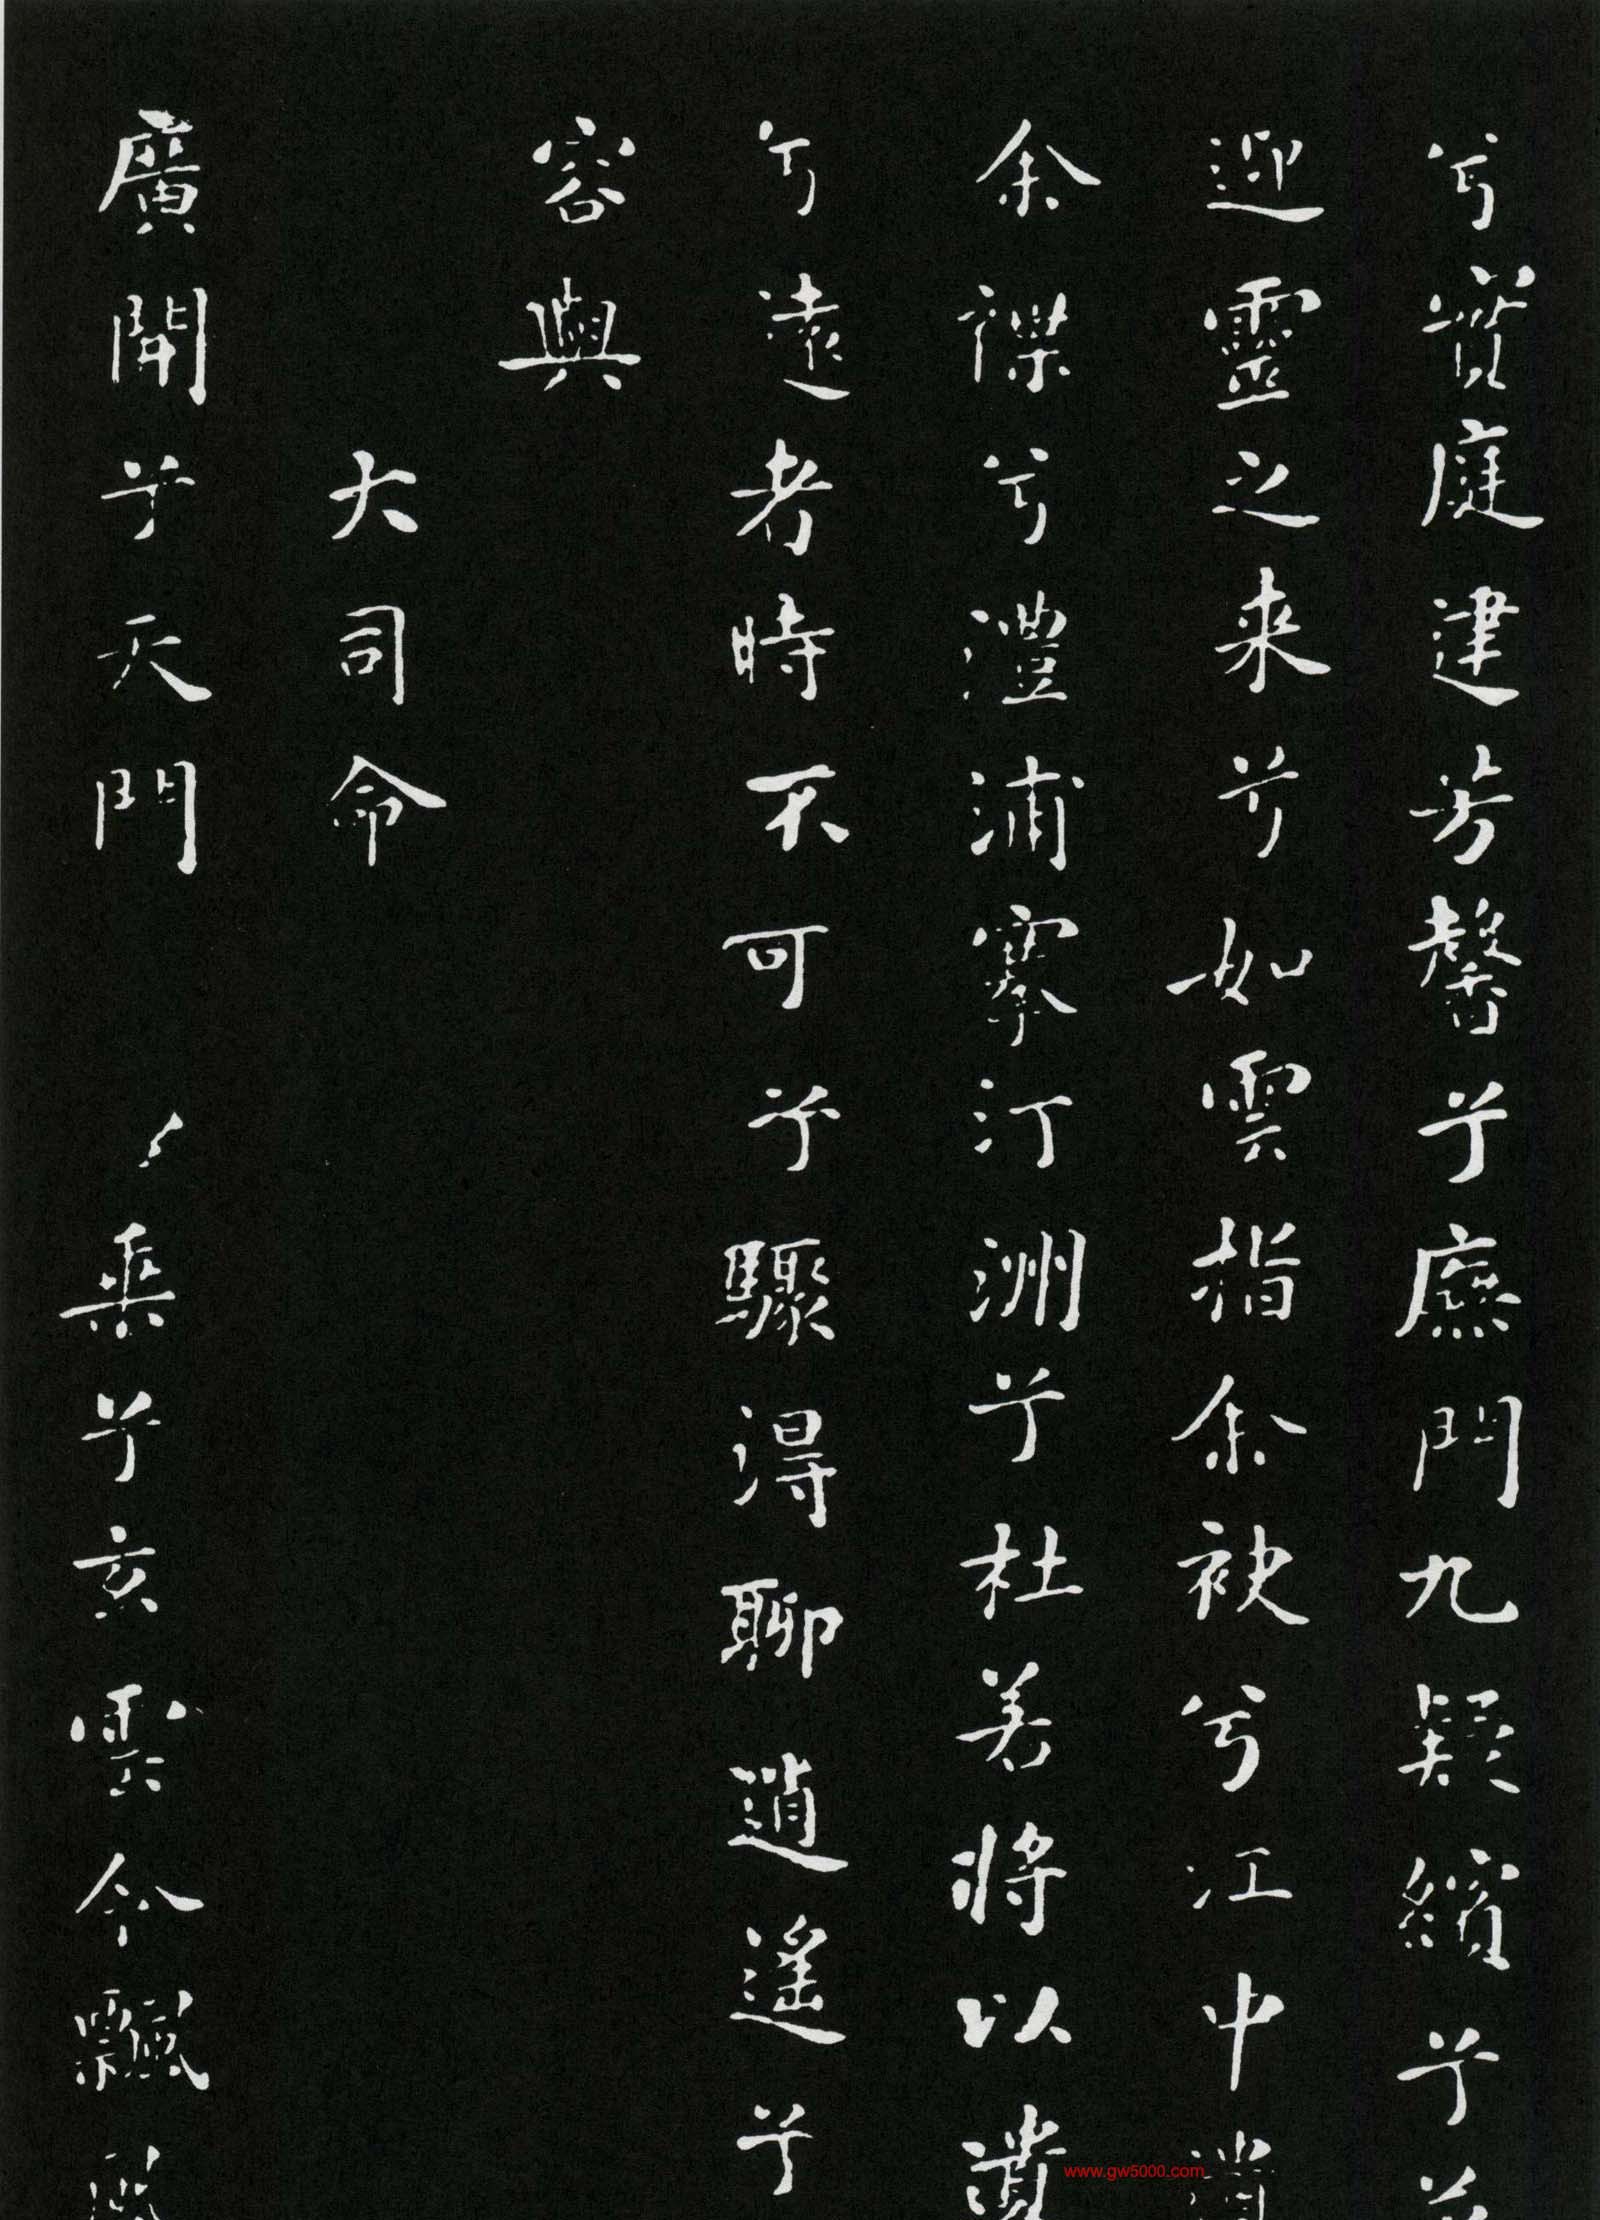 兮實庭建芳馨兮廡門九疑繽兮並
迎靈之来兮如雲指余袂兮江中遺
余褋兮澧浦搴汀洲兮杜若將以遺
兮遠者時不可兮驟得聊逍遙兮
容與
大司命
廣開兮天門 乘兮玄雲令飄
www.gw5000.com